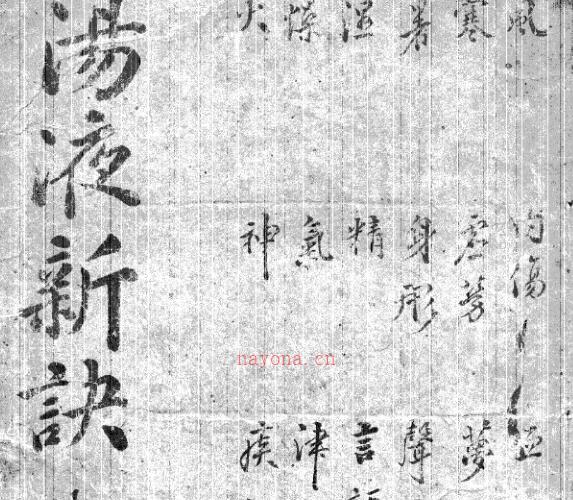 風 內傷 血
寒 虛勞 夢
暑 身形 聲
濕 精 言
燥 氣 津
火 神 痰
湯液新訣
nayona.cn